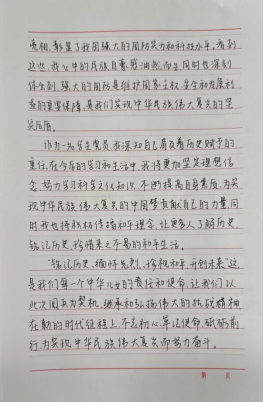 亮相,彰显了我国强大的国防实力和科技水平。看到
这些,我心中的民族自豪感油然而生,同时也深刻
体会到,强大的国防是维护国家主权、安全和发展利
益的重要保障,是我们实现中华民族伟大复兴的坚
实后盾。
作为一名学生党员,我深知自己肩负着历史赋予的
重任,在今后的学习和生活中,我将更加坚定理想信
念,努力学习科学文化知识,不断提高自身素质,为实
现中华民族伟大复兴的中国梦贡献自己的力量。同
时,我也将积极传播和平理念,让更多人了解历史,
铭记历史,珍惜来之不易的和平生活。
"铭记历史,缅怀先烈,珍视和平,开创未来"这
是我们每一个中华儿女的责任和使命,让我们以
此次阅兵为契机,继承和弘扬伟大的抗战精神
在新的时代征程上,不忘初心,牢记使命,砥砺前
行,为实现中华民族伟大复兴而努力奋斗。
第 页